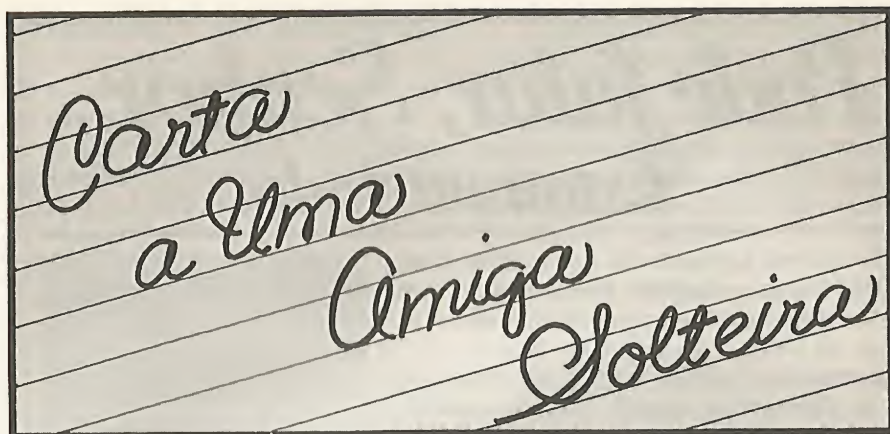 Carta
a Uma
Amiga
Solteira